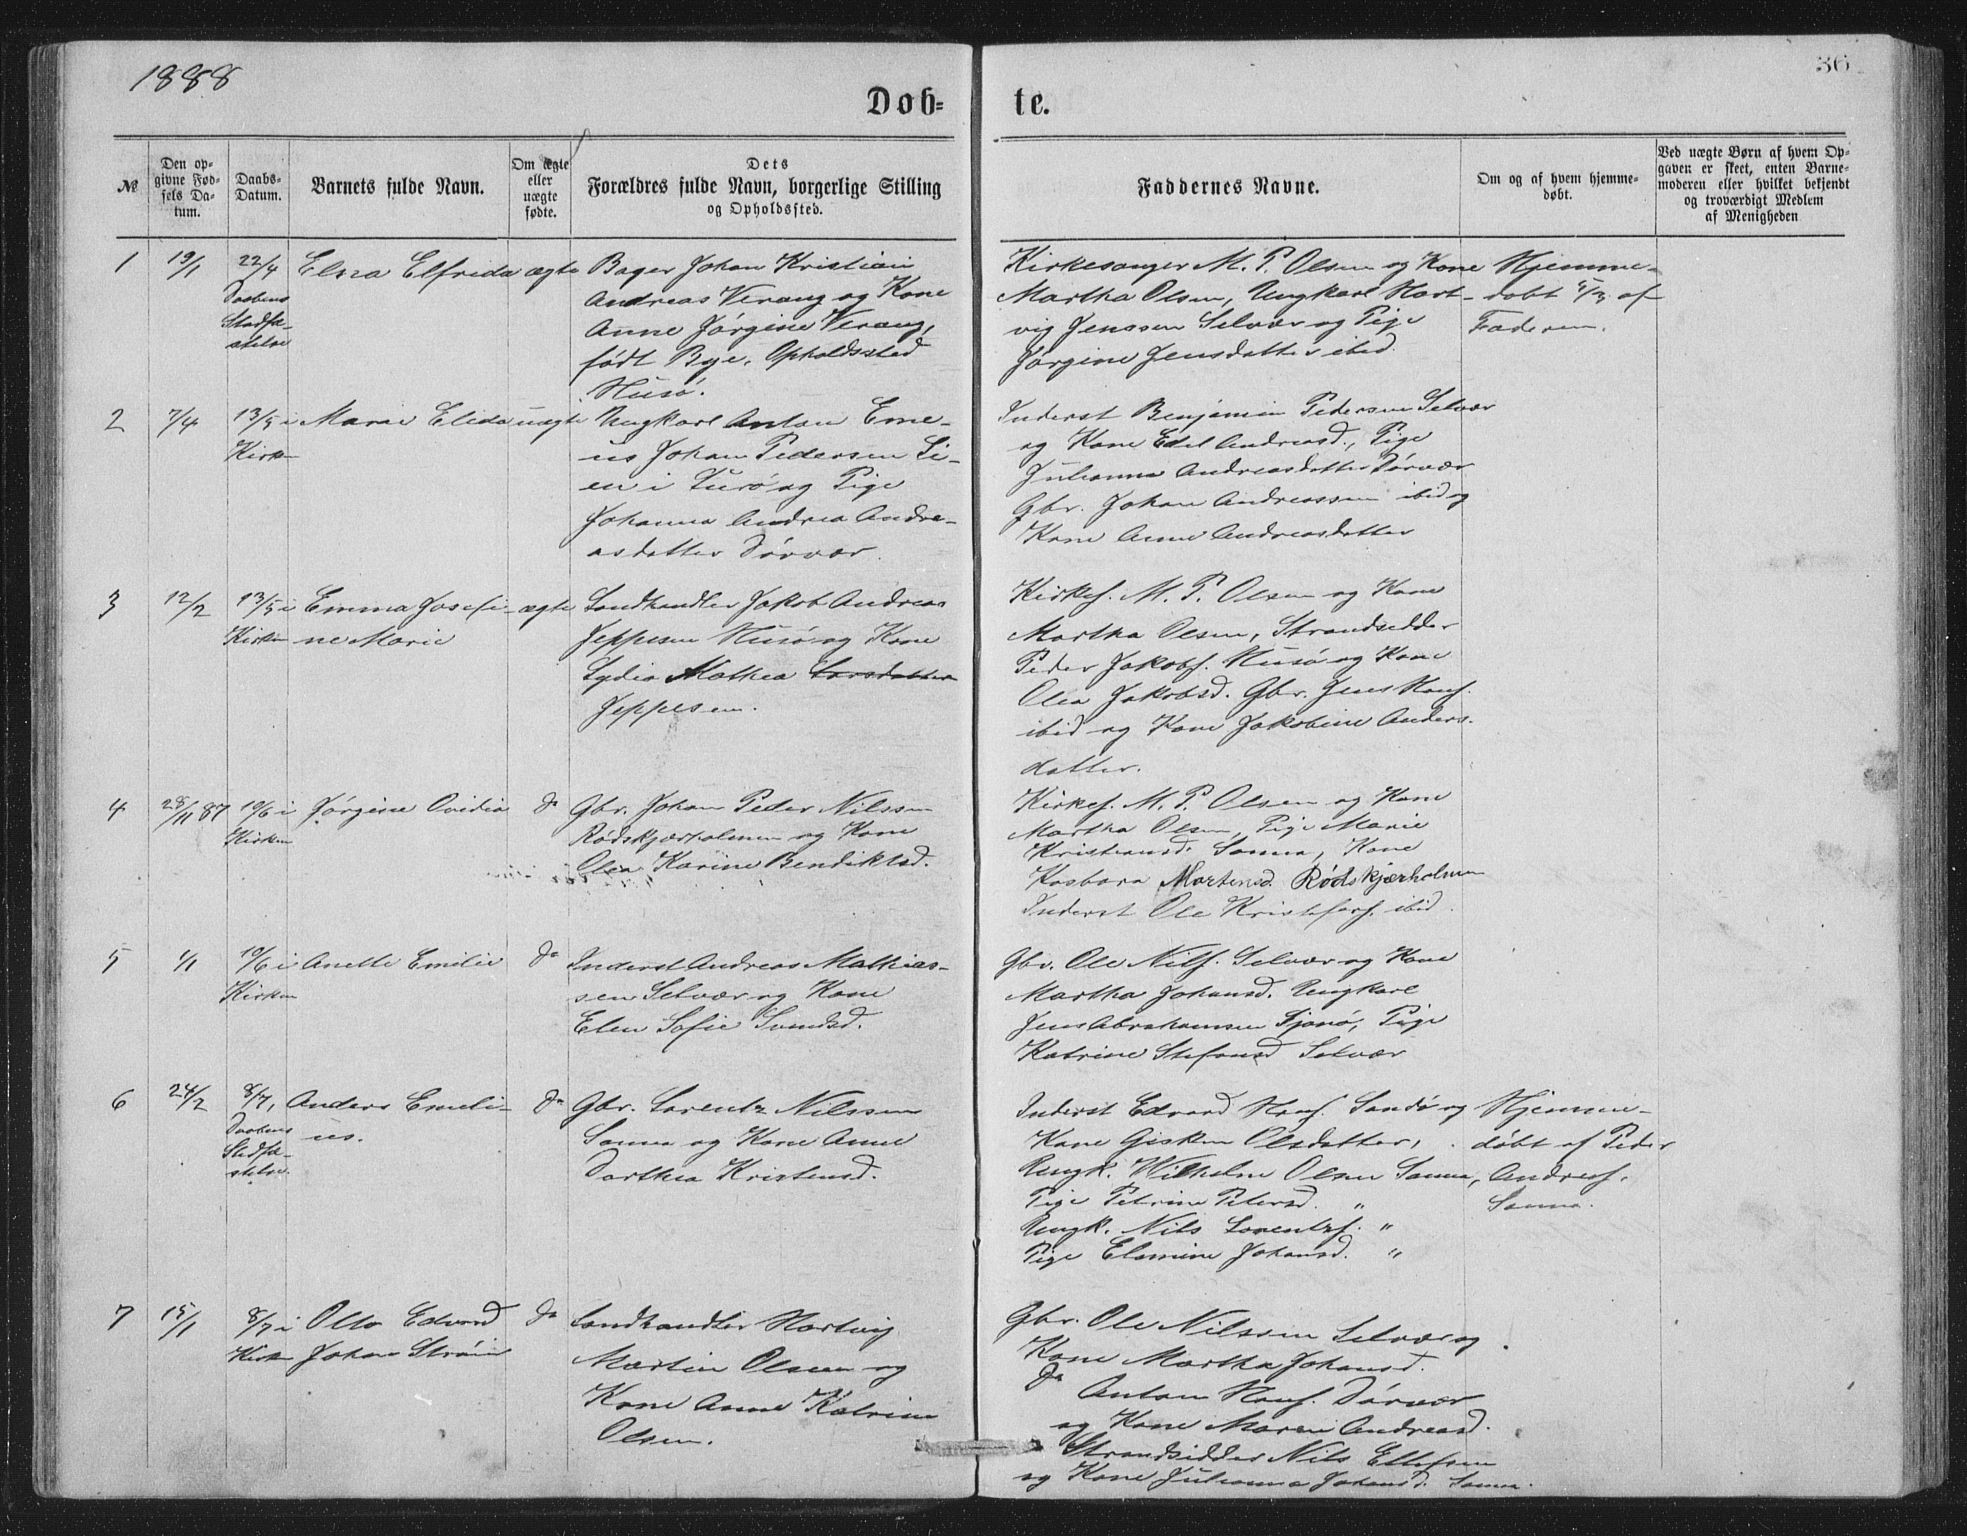 1888
36
Døb=
te.
№
Den op-
givne Fød-
sels Da-
tum.
Daabs-
Datum.
Barnets fulde Navn.
Om ægte
eller
uægte
fødte.
Dets
Forældres fulde Navn, borgerlige Stilling
og Opholdssted.
Faddernes Navne.
Om og af hvem hjemme-
døbt.
Ved uægte Børn af hvem Op-
gaven er skeet, enten Barne-
moderen eller hvilket bekjendt
og troværdigt Medlem
af Menigheden
1
19/1
22/4
Daabens
Stadfæ-
stelse
Elna Elfrida
ægte
Bager Johan Kristian
Andreas Verang og Kone
Anne Jørgine Verang,
født Bye. Opholdssted
Husø.
Kirkesanger M. P. Olsen og Kone
Martha Olsen, Ungkarl Hart-
vig Jenssen Selvær og Pige
Jørgine Jensdatter ibid.
Hjemme-
døbt af
Faderen.
2
7/4
13/5 i
Kirken
Marie Elida
uægte
Ungkarl Anton Eme-
us Johan Pedersen Li-
en i Lurø og Pige
Johanna Andrea Andre-
asdatter Dørvær.
Inderst Benjamin Pedersen Selvær
og Kone Edel Andreasd., Pige
Julianna Andreasdatter Dørvær
Gbr. Johan Andreassen ibid og
Kone Anne Andreasdatter
3
12/2
13/5 i
Kirken
Emma Josefi-
ne Marie
ægte
Landhandler Jakob Andreas
Jeppesen Husø og Kone
Lydia Mathea Larsdatter
Jeppesen.
Kirkes. M. P. Olsen og Kone
Martha Olsen, Strandsidder
Peder Jakobs. Husø og Kone
Olea Jakobsd. Gbr. Jens Hans.
ibid og Kone Jakobine Anders-
datter.
4
28/11 87
10/6 i
Kirken
Jørgine Ovidia
do
Gbr. Johan Peder Nilssen
Rødskjærholmen og Kone
Olea Karine Bendiktsd.
Kirkes. M. P. Olsen og Kone
Martha Olsen, Pige Marie
Kristiansd. Sanna, Kone
Mortensd. Rødskjærholmen
Inderst Ole Kristofers. ibid.
5
1/1
10/6 i
Kirken
Anette Emilie
do
Inderst Andreas Mathias-
sen Selvær og Kone
Elen Sofie
Gbr. Ole Nils. Selvær og Kone
Martha Johansd. Ungkarl
Jens Abrahamsen Sjonø, Pige
Katrine Stefansd Selvær
6
24/2
8/7,
Daabens
Stadfæ-
stelse.
Anders Emeli-
us.
do
Gbr. Lorentz Nilssen
Sanna og Kone Anne
Dorthea Kristensd.
Inderst Edvard Hans. Sandø og
Kone Gisken Olsdatter,
Ungk. Wilhelm Olsen Sanna,
Pige Petrine Petersd. "
Ungk. Nils Lorentzs. "
Pige Elamine Johansd. "
Hjemme-
døbt af Peder
Andreas.
Sanna.
7
15/1
8/7 i
Kirken
Otto Edvard
Johan Strøm
do
Landhandler Hartvig
Martin Olsen og
Kone Anne Katrine
Olsen.
Gbr. Ole Nilssen Selvær og
Kone Martha Johansd.
do Anton Hans. Dørvær
og Kone Maren Andreasd.
Strandsidder Nils Ellefsen
og Kone Julianna Johansd. Sanna.